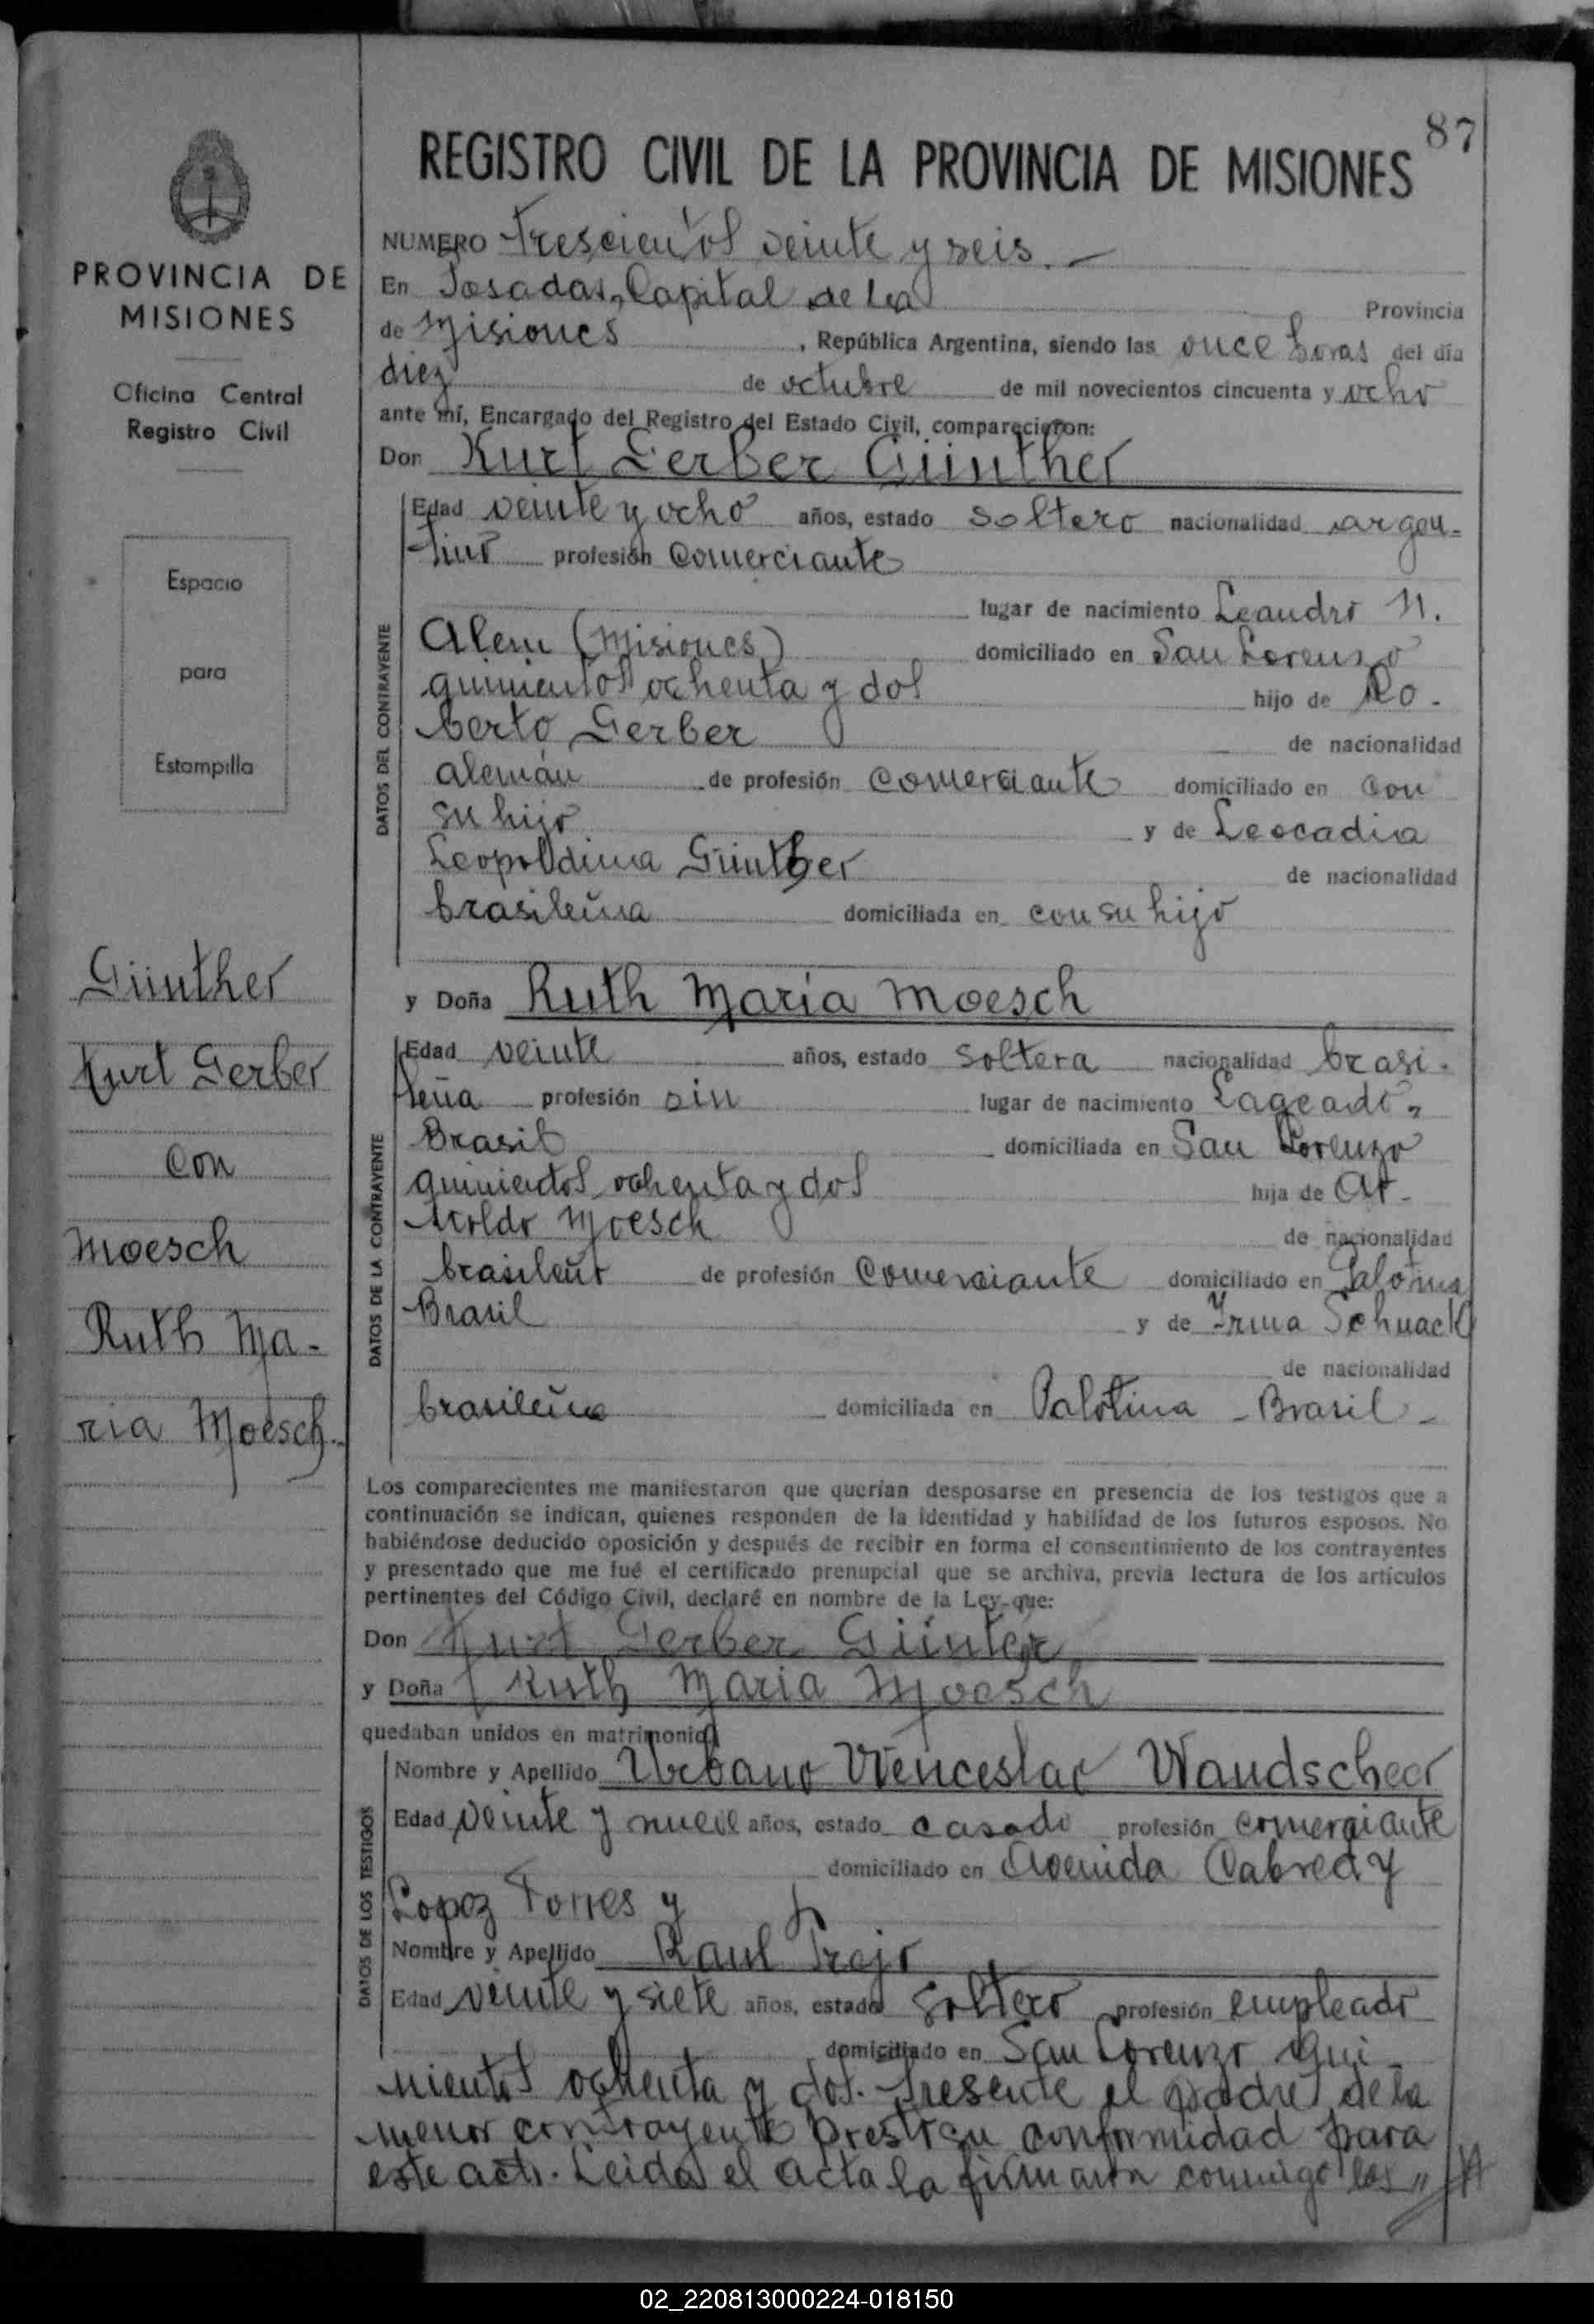 87
REGISTRO CIVIL DE LA PROVINCIA DE MISIONES
PROVINCIA DE
MISIONES
Oficina Central
Registro Civil
Espacio
para
Estampilla
Günther
Kurt Gerber
Con
Moesch
Ruth Ma-
ria Moesch.
NUMERO Trescientos veinte y seis. —
En Posadas, Capital de la Provincia
de Misiones, República Argentina, siendo las once horas del día
diez de octubre de mil novecientos cincuenta y ocho
ante mí, Encargado del Registro del Estado Civil, comparecieron:
Don Kurt Gerber Günther
DATOS DEL CONTRAYENTE
Edad veinte y ocho años, estado soltero nacionalidad argen-
tino profesión Comerciante
lugar de nacimiento Leandro N.
Alem (Misiones) domiciliado en San Lorenzo
quinientos ochenta y dos hijo de Ro-
berto Gerber de nacionalidad
alemán de profesión comerciante domiciliado en con
su hijo y de Leocadia
Leopoldina Günther de nacionalidad
brasileña domiciliada en con su hijo
y Doña Ruth María Moesch
DATOS DE LA CONTRAYENTE
Edad veinte años, estado soltera nacionalidad brasi-
leña profesión sin lugar de nacimiento Lageado,
Brasil domiciliada en San Lorenzo
quinientos ochenta y dos hija de Ar-
noldo Moesch de nacionalidad
brasileño de profesión Comerciante domiciliado en Palotina
Brasil y de Yrma Schnack
de nacionalidad
brasileña domiciliada en Palotina - Brasil -
Los comparecientes me manifestaron que querían desposarse en presencia de los testigos que a
continuación se indican, quienes responden de la identidad y habilidad de los futuros esposos. No
habiéndose deducido oposición y después de recibir en forma el consentimiento de los contrayentes
y presentado que me fué el certificado prenupcial que se archiva, previa lectura de los artículos
pertinentes del Código Civil, declaré en nombre de la Ley que:
Don Kurt Gerber Günter
y Doña Ruth Maria Moesch
quedaban unidos en matrimonio
DATOS DE LOS TESTIGOS
Nombre y Apellido Urbano Wenceslao Wandscheer
Edad veinte y nueve años, estado casado profesión comerciante
domiciliado en Avenida Cabred y
Lopez Torres y
Nombre y Apellido Raul Trejo
Edad veinte y siete años, estado soltero profesión empleado
domiciliado en San Lorenzo qui-
nientos ochenta y dos. Presente el padre de la
menor contrayente presta su conformidad para
este acto. Leida el acta la firmaron conmigo los
02_220813000224-018150